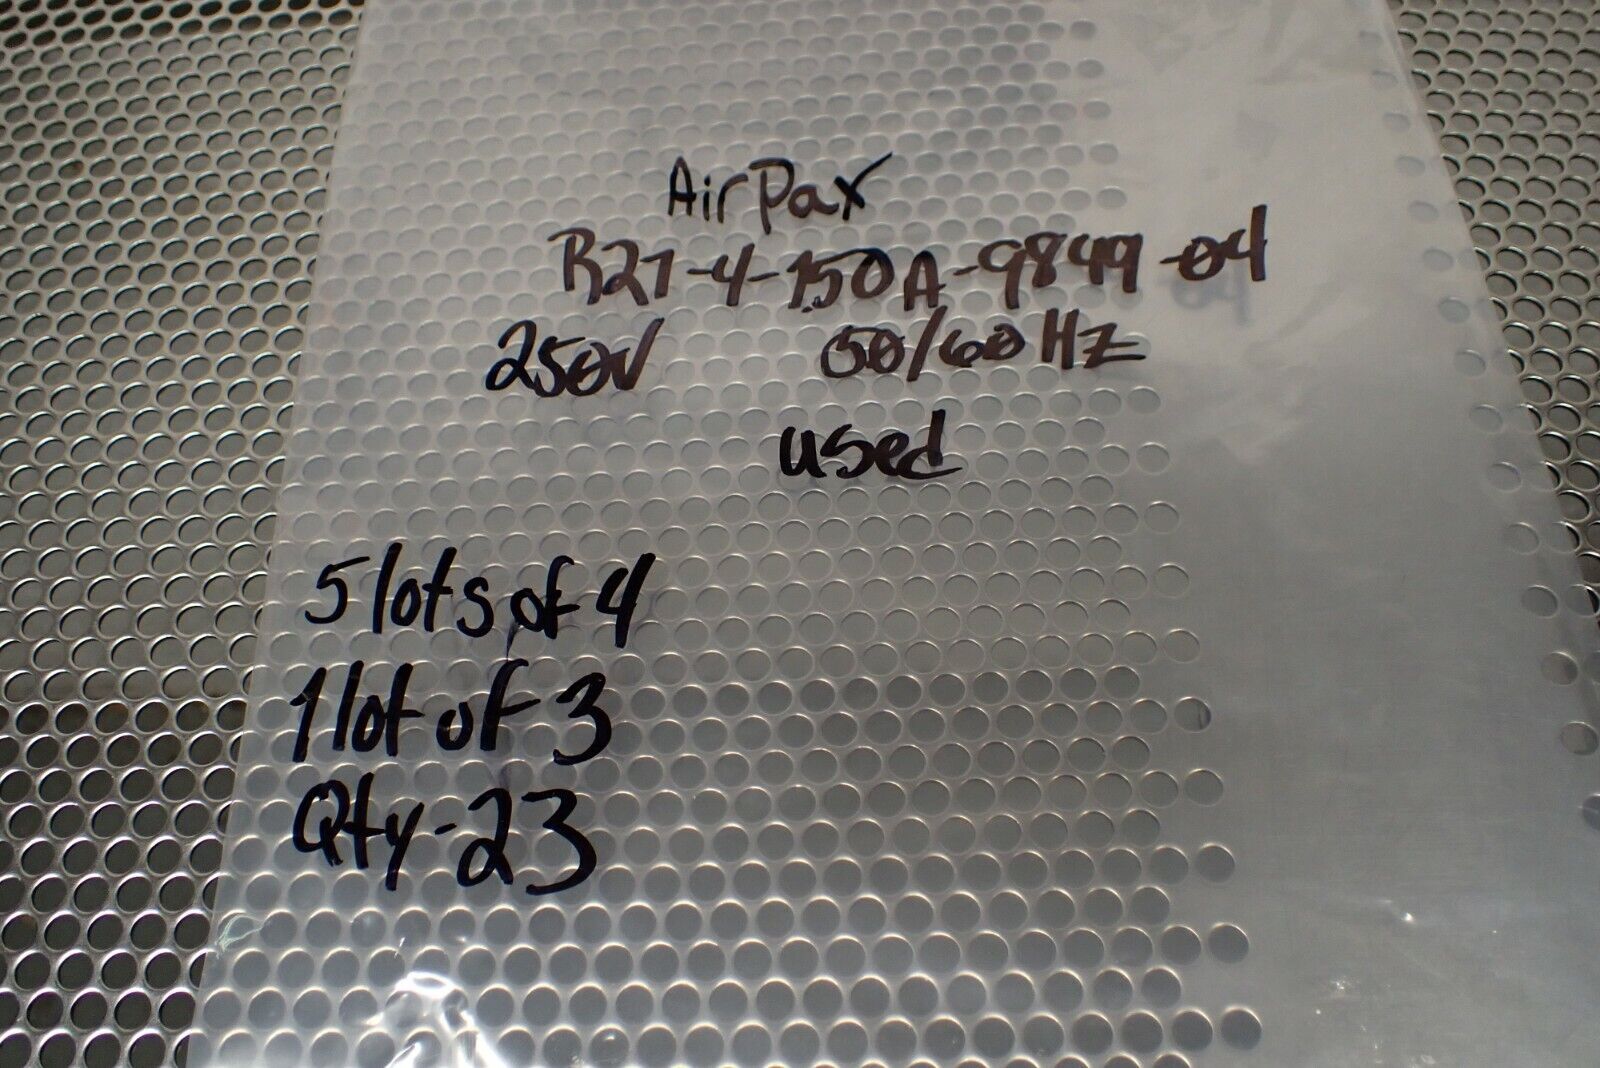 AirPax
R21-4-7.50A-9849-04
250V 50/60 Hz
used
5 lots of 4
1 lot of 3
Qty-23